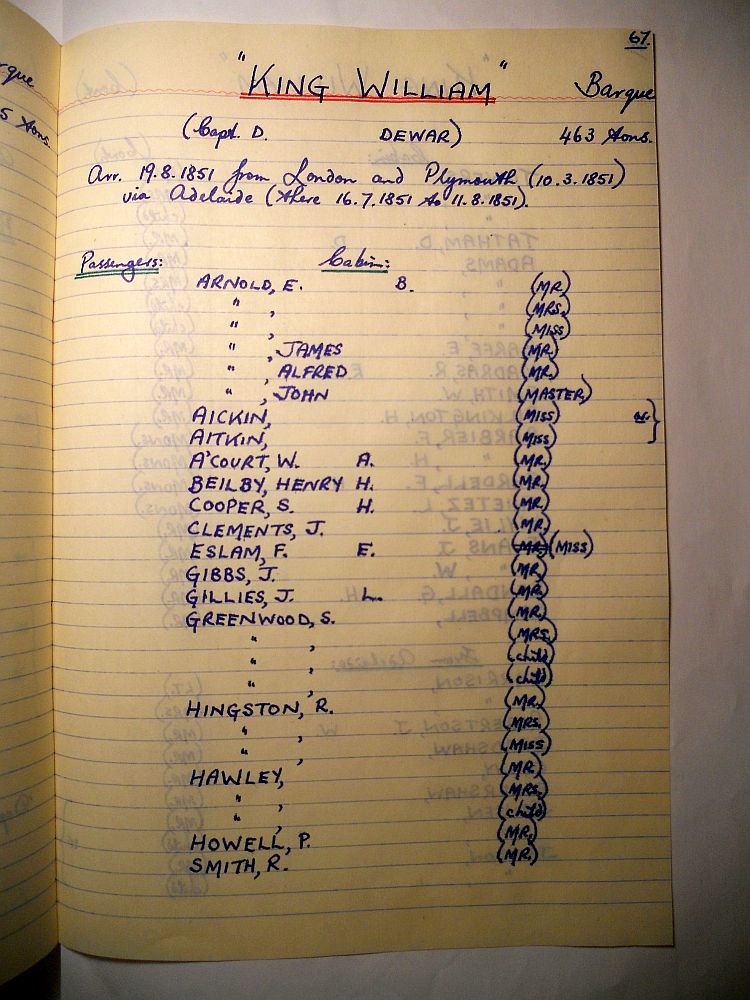 67.
"KING WILLIAM" Barque
(Capt. D. DEWAR) 463 tons.
Arr. 19.8.1851 from London and Plymouth (10.3.1851)
via Adelaide (there 16.7.1851 to 11.8.1851).
Passengers: Cabin:
ARNOLD, E. B. (MR.)
" , (MRS.)
" , (MISS)
" , JAMES (MR.)
" , ALFRED (MR.)
" , JOHN (MASTER)
AICKIN, (MISS)
AITKIN, (MISS)
A'COURT, W. A. (MR.)
BEILBY, HENRY H. (MR.)
COOPER, S. H. (MR.)
CLEMENTS, J. (MR.)
ESLAM, F. E. (MR.) (MISS)
GIBBS, J. (MR.)
GILLIES, J. L. (MR.)
GREENWOOD, S. (MR.)
" , (MRS.)
" , (child)
" , (child)
HINGSTON, R. (MR.)
" , (MRS.)
" , (MISS)
HAWLEY, (MR.)
" , (MRS.)
" , (child)
HOWELL, P. (MR.)
SMITH, R. (MR.)